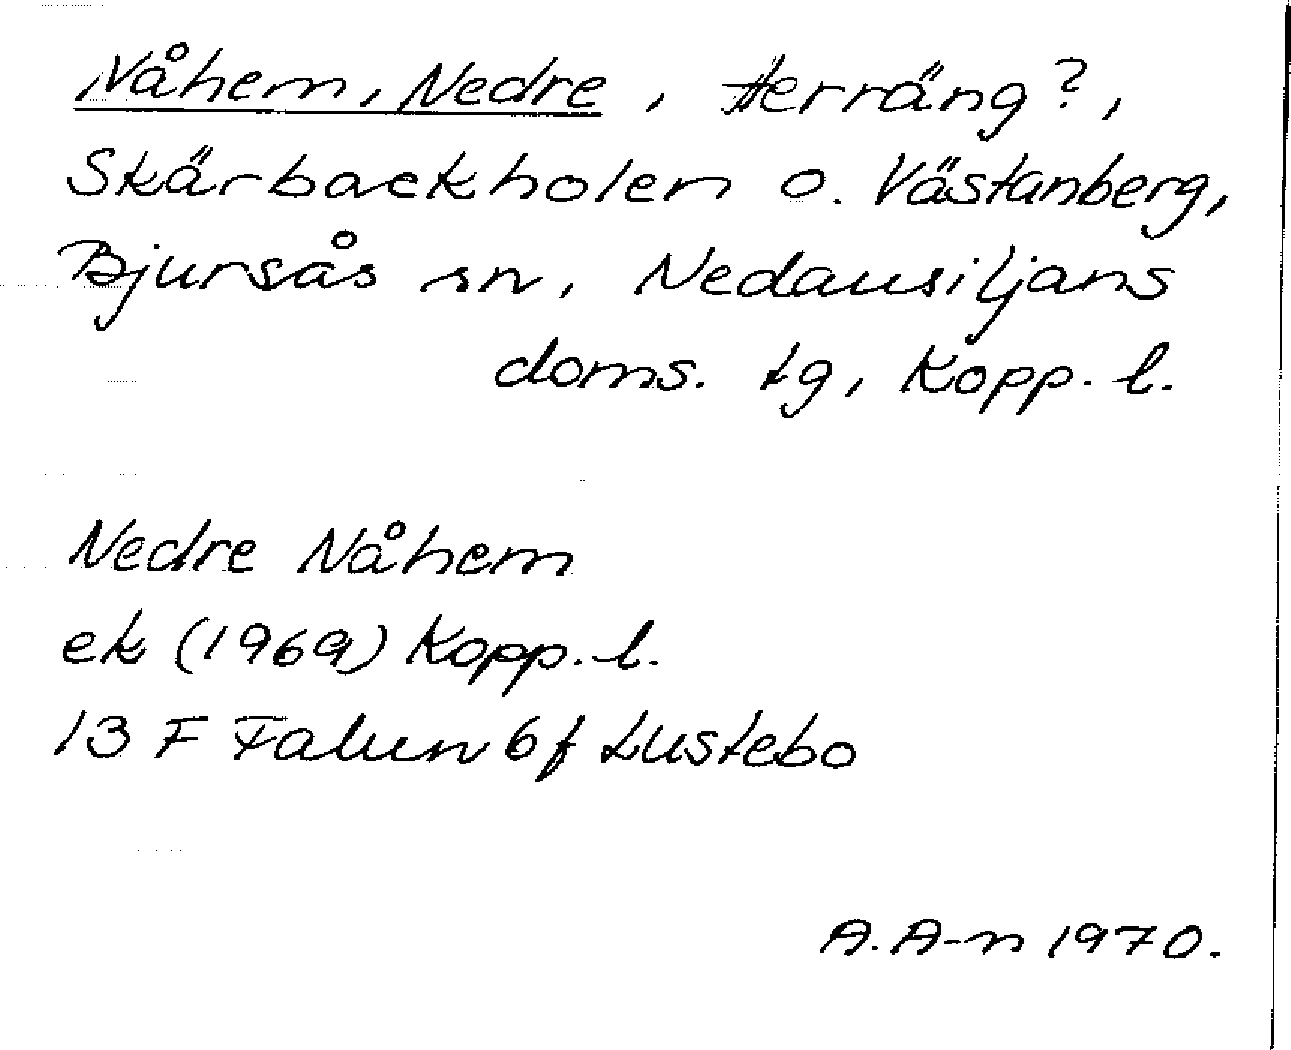 Nåhem, Nedre, Herräng?,
Skärbackholen o. Västanberg,
Bjursås sn, Nedansiljans
doms. tg, Kopp. l.
Nedre Nåhem
ek (1969) Kopp. l.
13 F Falun 6f Lustebo
A. A-n 1970.